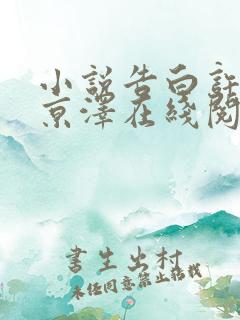 小说告白許
京澤在綫閱
書生出村
未经同意禁止转载